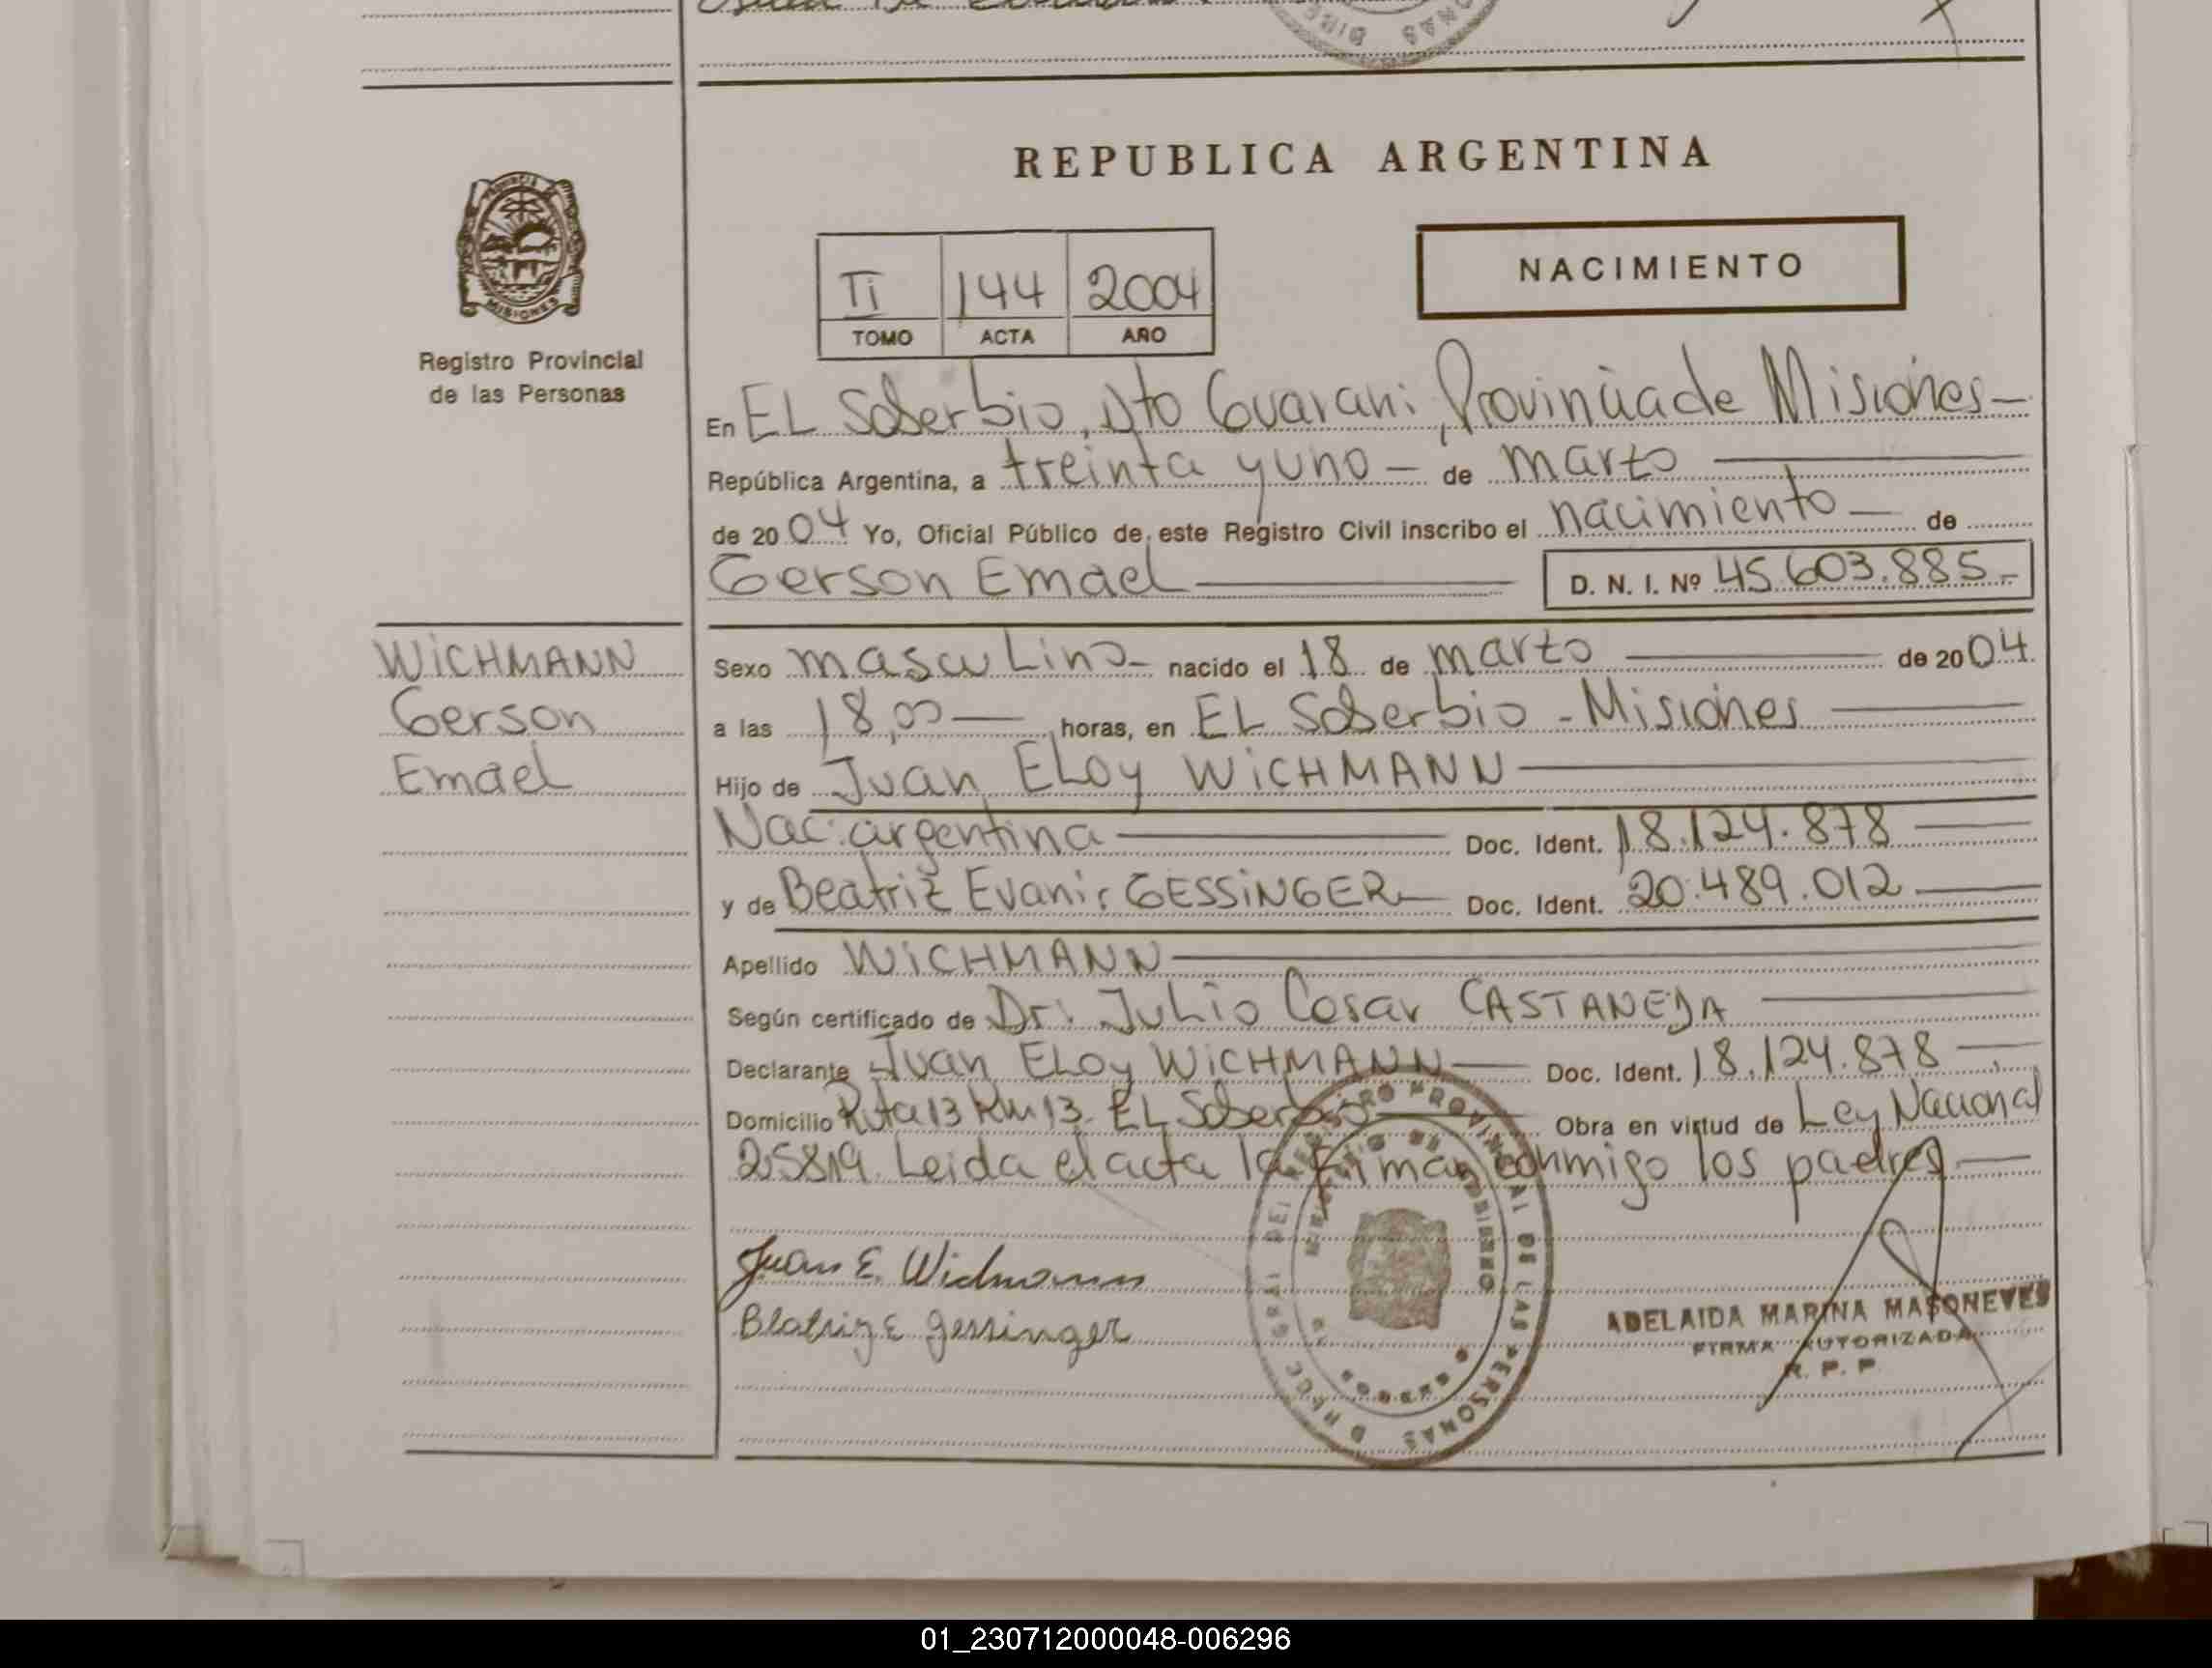 REPUBLICA ARGENTINA
NACIMIENTO
Ti 144 2004
TOMO ACTA AÑO
Registro Provincial
de las Personas
En EL Soberbio, Dto Guarani, Provincia de Misiones
República Argentina, a treinta y uno - de marzo
de 2004 Yo, Oficial Público de este Registro Civil inscribo el nacimiento de
Gerson Emael D. N. I. Nº 45.603.885-
WiCHMANN
Gerson
Emael
Sexo masculino- nacido el 18 de marzo de 2004
a las 18,00 horas, en EL Soberbio - Misiones
Hijo de Juan ELoy WiCHMANN
Nac: argentina Doc. Ident. 18.124.878
y de Beatriz Evanir GESSiNGER Doc. Ident. 20.489.012
Apellido WiCHMANN
Según certificado de Dr. Julio Cesar CASTANEDA
Declarante Juan ELoy WiCHMANN Doc. Ident. 18.124.878
Domicilio Ruta 13 Km 13. EL Soberbio Obra en virtud de Ley Nacional
25819. Leida el acta la firman conmigo los padres
Juan E. Wichmann
Beatriz E gessinger
ADELAIDA MARINA MASONEVES
FIRMA AUTORIZADA
R. P. P.
01_230712000048-006296